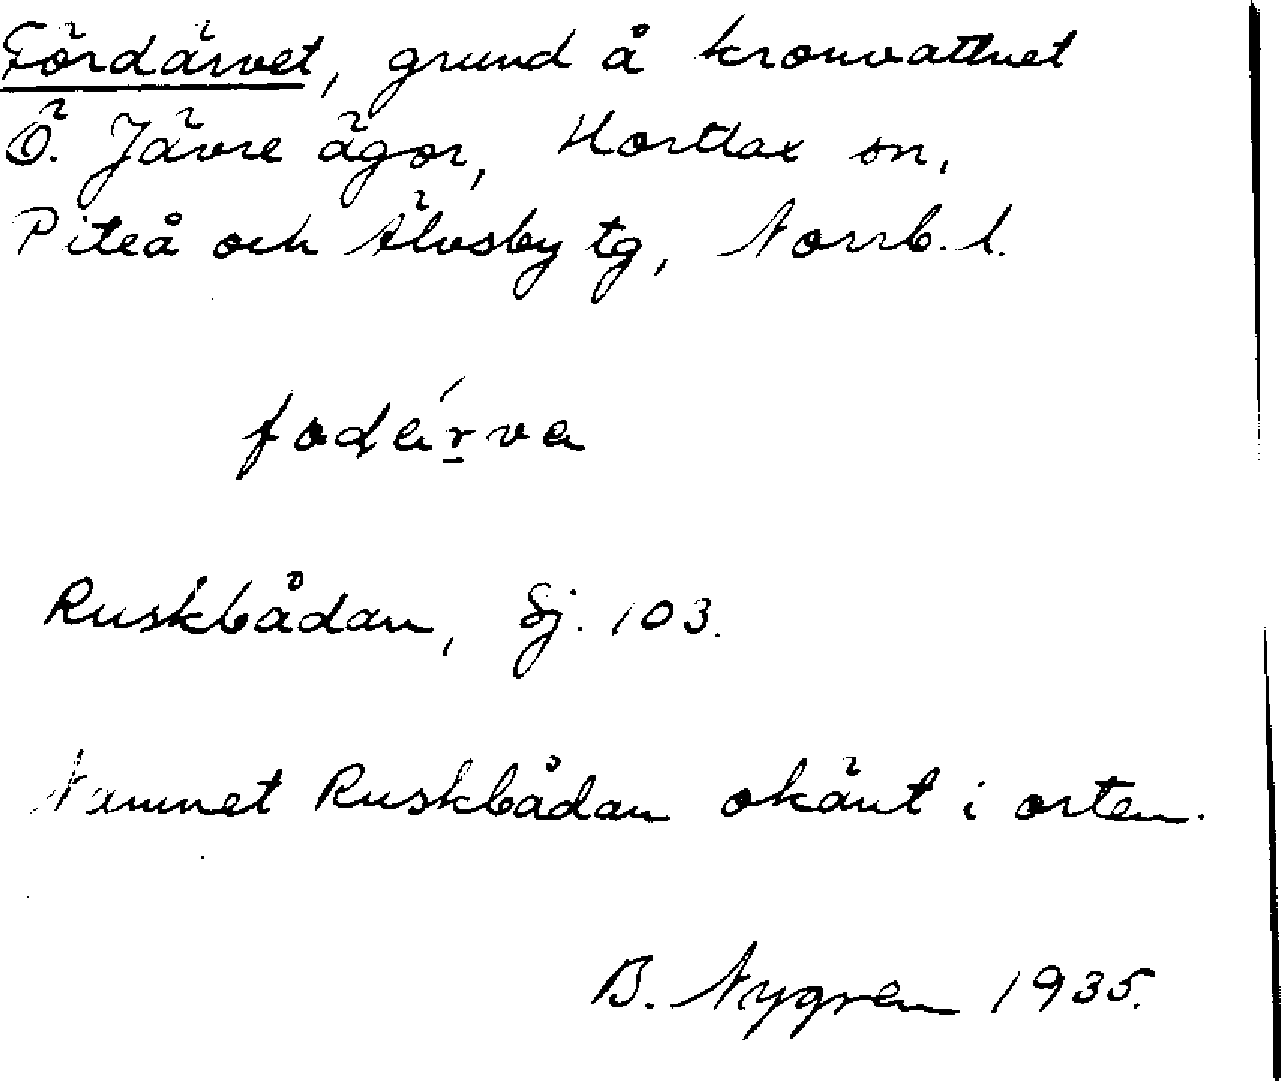 Fördärvet, grund å kronvattnet
Ö. Jävre ägor, Hortlax sn,
Piteå och Älvsby tg, Norrb. l.
fodárva
Ruskbådan, Sj. 103.
Namnet Ruskbådan okänt i orten.
B. Nygren 1935.